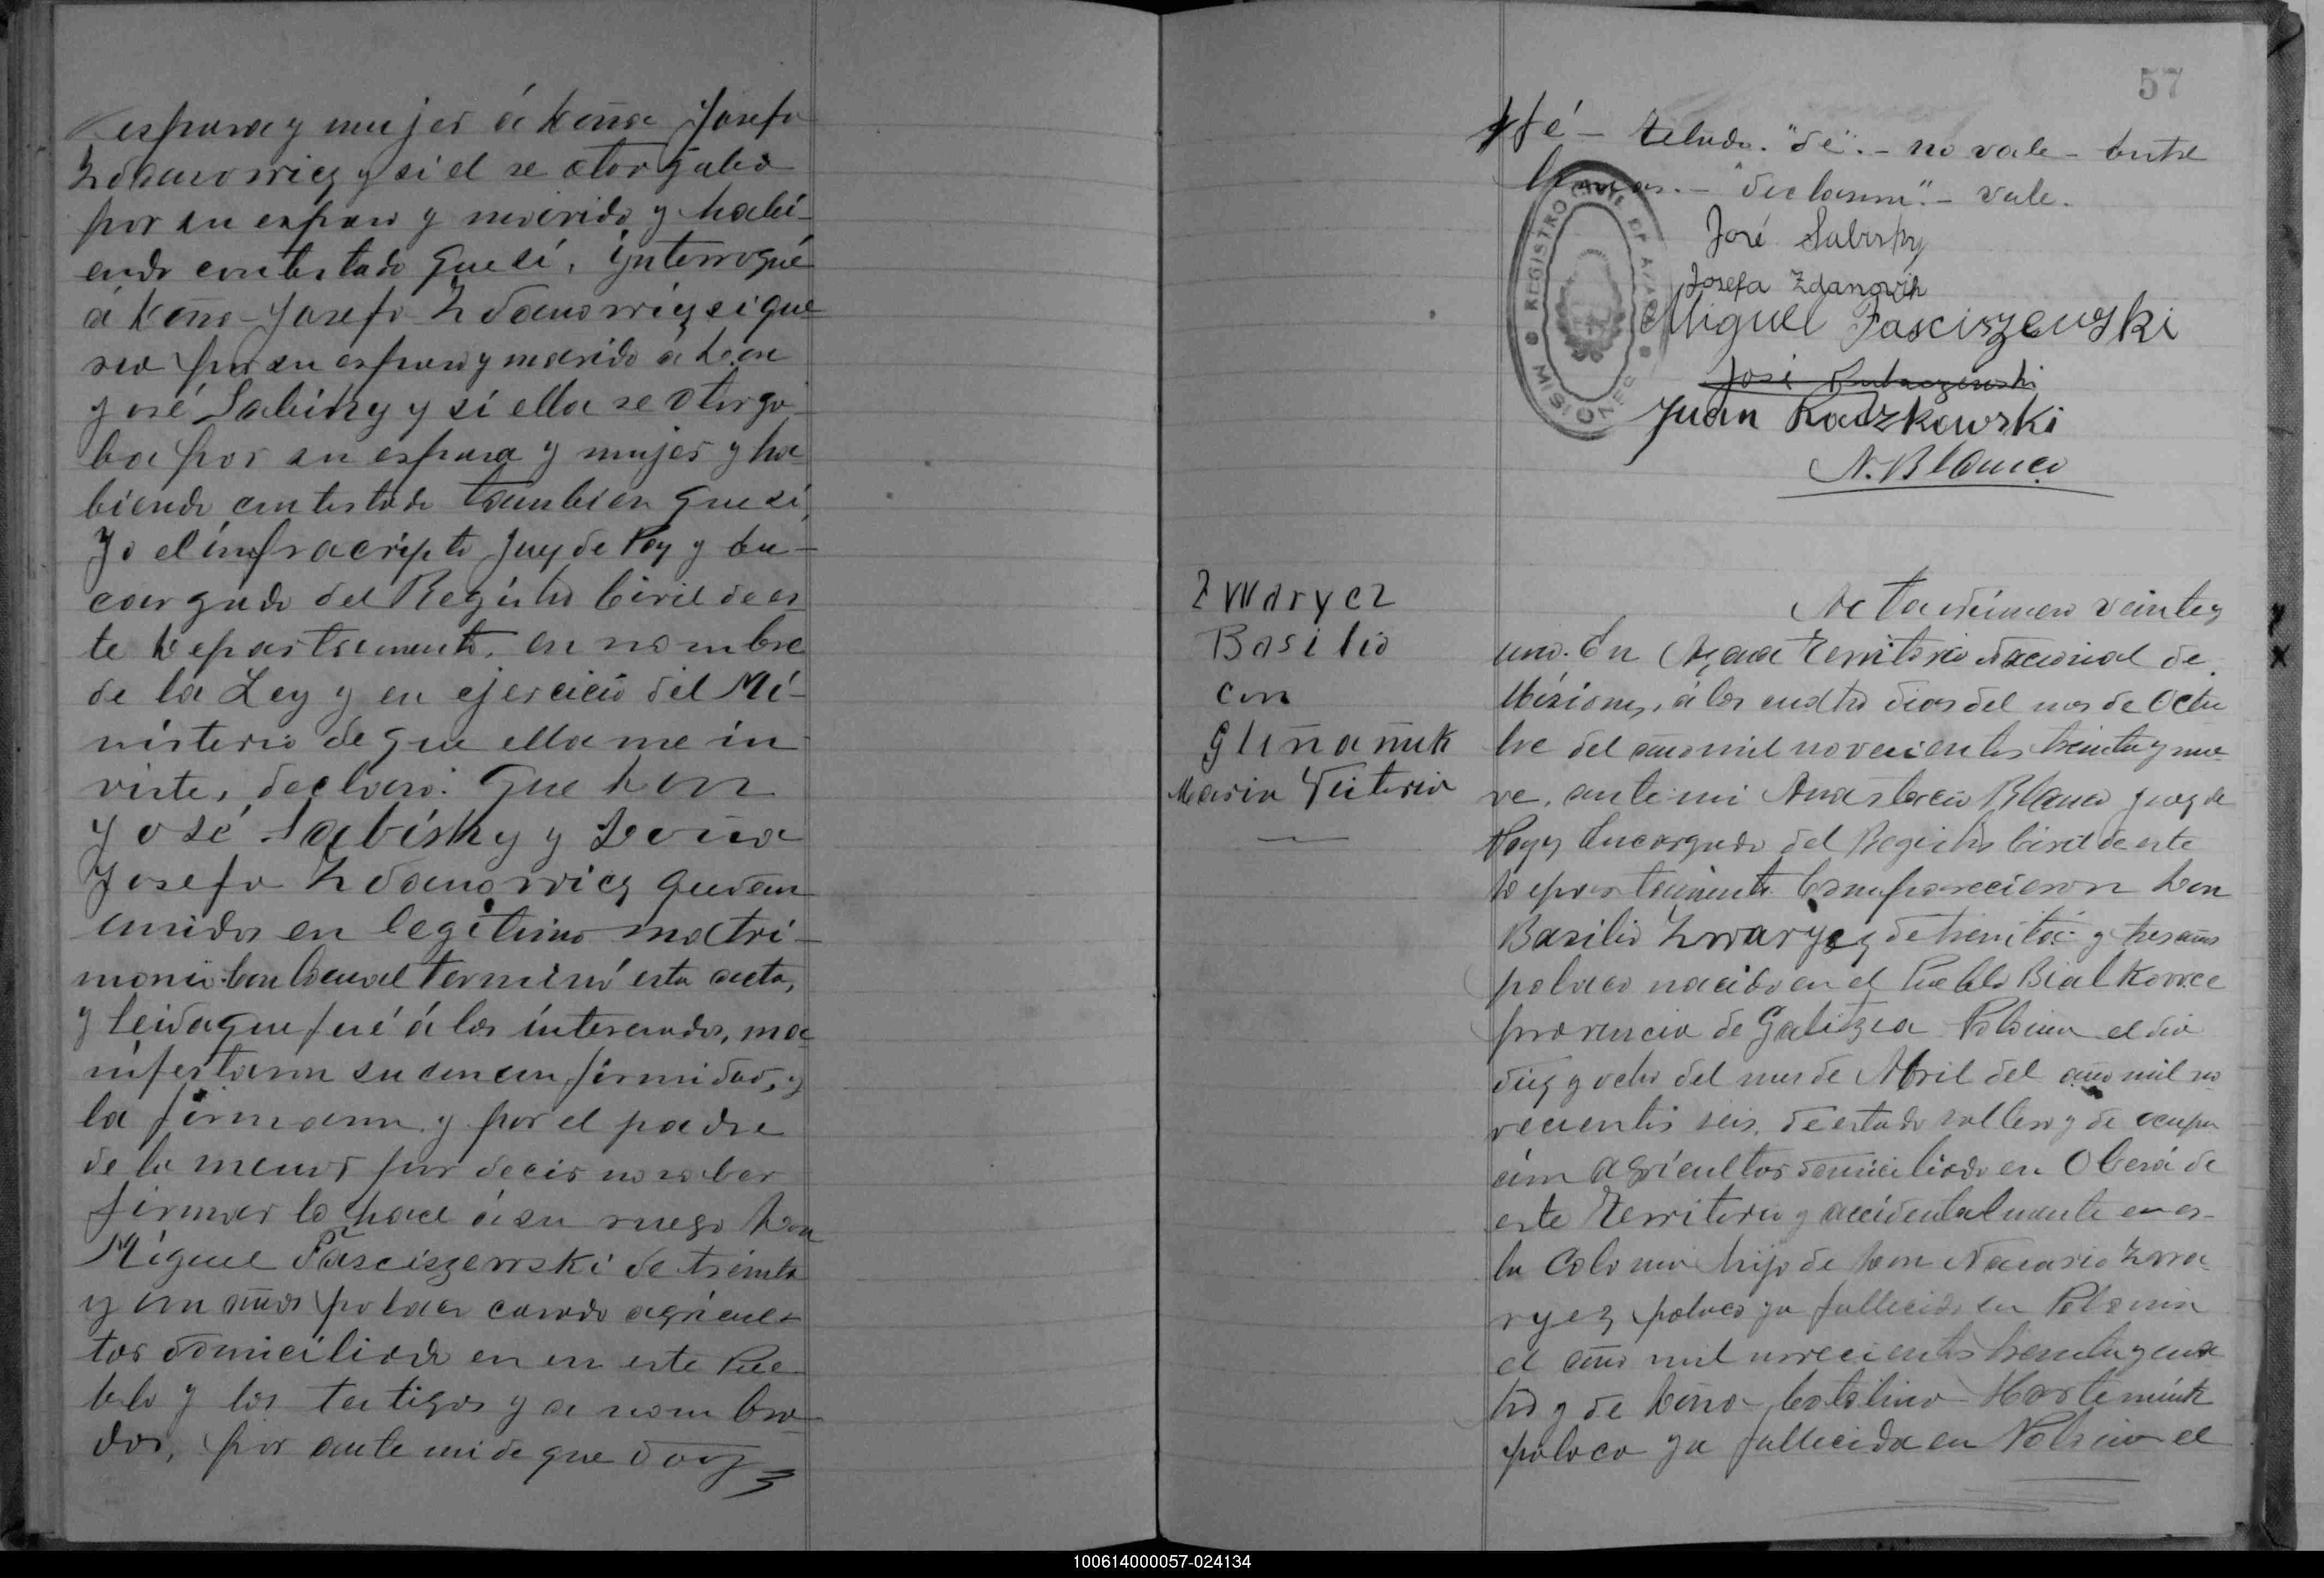 esposa y mujer á doña Josefa
Zdanowiez y si el se otorgaba
por su esposo y marido y habi-
endo contestado que sí, ynterrogué
á doña Josefa Zdanowiez si que
ria por su esposo y marido a don
José Sabisky y si ella se otorga-
ba por su esposa y mujer y ha-
biendo contestado tambien que sí,
Yo el infracripto Juez de Paz y En-
cargado del Registro Civil de es-
te Departamento, en nombre
de la Ley y en ejercicio del Mi-
nisterio de que ella me in
viste, declaro: Que don
José Sabisky y Doña
Josefa Zdanowiez quedan
unidos en legitimo matri-
monio. Con lo cual terminó esta acta,
y leida que fué á los interesados, ma-
nifestaron su conformidad, y
la firmaron y por el padre
de la menor por decir no saber
firmar lo hace á su ruego don
Miguel Fasciszewski de treinta
y un años polaco casado agricul-
tor domiciliado en en este Pue-
blo y los testigos ya nombra-
dos, por ante mi de que doy
57
fé - Telado. "de". - no vale - Entre
lineas. - "declaran". - vale.
REGISTRO CIVIL DE AZARA
MISIONES
José Sabisky
Josefa Zdanowih
Miguel Fasciszewski
José
Juan Raczkowski
N. Blanco
Zwarycz
Basilio
con
Gliñañuk
Maria Victoria
Acta número veinte y
uno. En Azara Territorio Nacional de
Misiones, á los cuatro dias del mes de Octu
bre del año mil novecientos treinta y nue-
ve, ante mi Anastacio Blanco Juez de
Paz y Encargado del Registro Civil de este
Departamento Comparecieron don
Basilio Zwarycz de treinta y tres años
polaco nacido en el Pueblo Bialkowce
provencia de Galizia Polonia el dia
diez y ocho del mes de Abril del año mil no
vecientos seis, de estado soltero y de ocupa
cion agricultor domiciliado en Oberá de
este Territorio y accidentalmente en es-
ta Colonia hijo de don Nazario Zwa-
rycz polaco ya fallecido en Polonia
el año mil novecientos treinta y cua
tro y de doña Catalina Hartemink
polaca ya fallecida en Polonia el